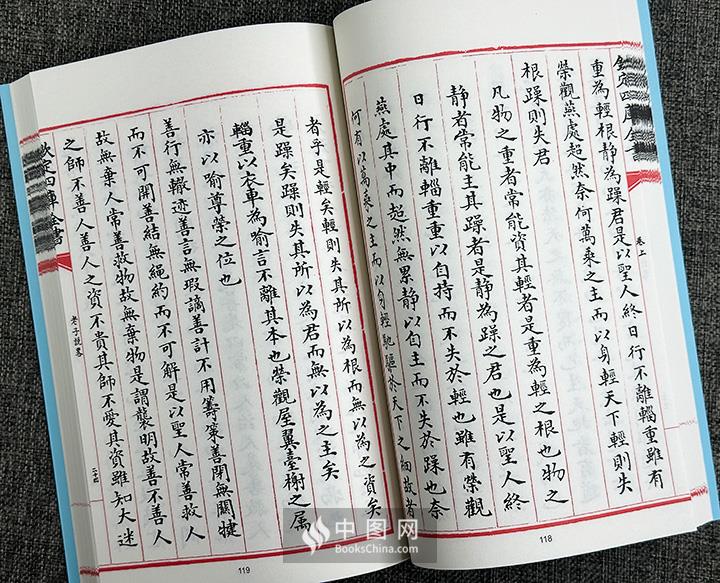 欽定四庫全書
卷上
重為輕根靜為躁君是以聖人終日行不離輜重雖有
榮觀燕處超然奈何萬乗之主而以身輕天下輕則失
根躁則失君
凡物之重者常能資其輕者是重為輕之根也物之
靜者常能主其躁者是靜為躁之君也是以聖人終
日行不離輜重重以自持而不失於輕也雖有榮觀
燕處其中而超然無累靜以自主而不失於躁也奈
何有以萬乗之主而以身輕馳驅於天下之細故者
118
者乎是輕矣輕則失其所以為根而無以為之資矣
是躁矣躁則失其所以為君而無以為之主矣
輜重以衣車為喻言不離其本也榮觀屋翼臺榭之属
亦以喻尊榮之位也
善行無轍迹善言無瑕謫善計不用籌策善閉無關楗
而不可開善結無繩約而不可解是以聖人常善救人
故無棄人常善救物故無棄物是謂襲明故善不善人
之師不善人善人之資不貴其師不愛其資雖知大迷
欽定四庫全書
老子說畧
二十四
119
中图网
BooksChina.com